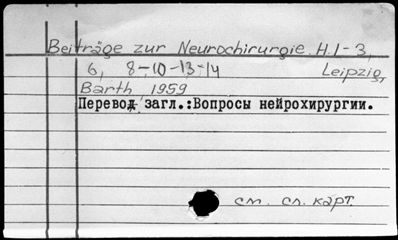 Beiträge zur Neurochirurgie. H. 1-3,
6, 8-10-13-14 Leipzig,
Barth 1959
Перевод загл.:Вопросы нейрохирургии.
см. сл. карт.